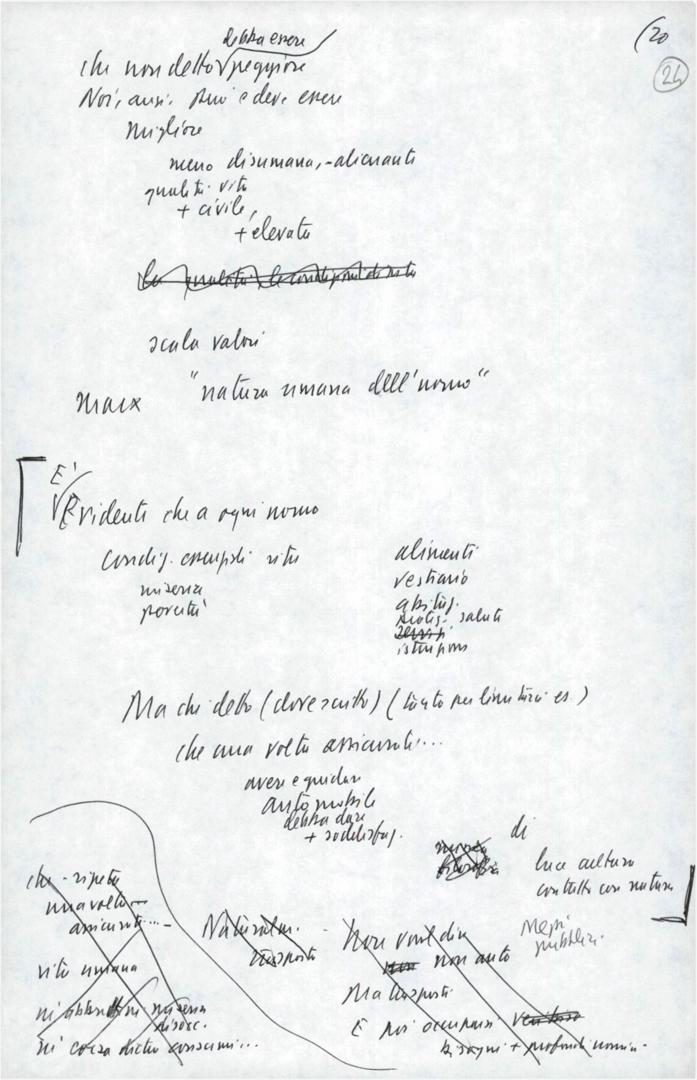 (20
24
debba essere
chi non detto peggiore
Noi, anzi, può e deve essere
migliore
meno disumana, - alienante
qualità vita
+ civile,
+ elevata
la qualità, le condizioni di vita
scala valori
Marx "natura umana dell'uomo"
E'
Evidente che a ogni uomo
condiz. essenziali vita
miseria
povertà
alimenti
vestiario
abitaz.
protez. salute
servizi
istruzione
Ma chi detto (dove scritto) (tanto per limitarci es.)
che una volta assicurati...
avere e guidare
automobile
debba dare
+ soddisfaz.
di
luce cultura
contatto con natura
Mezzi
pubblici.
che - ripeto
una volta
assicurati... -
vita umana
miseria
disocc.
consumi...
Naturalm.
trasporti
Non vuol dire
non auto
Ma trasporti
E poi occuparsi
bisogni + profondi uomini.